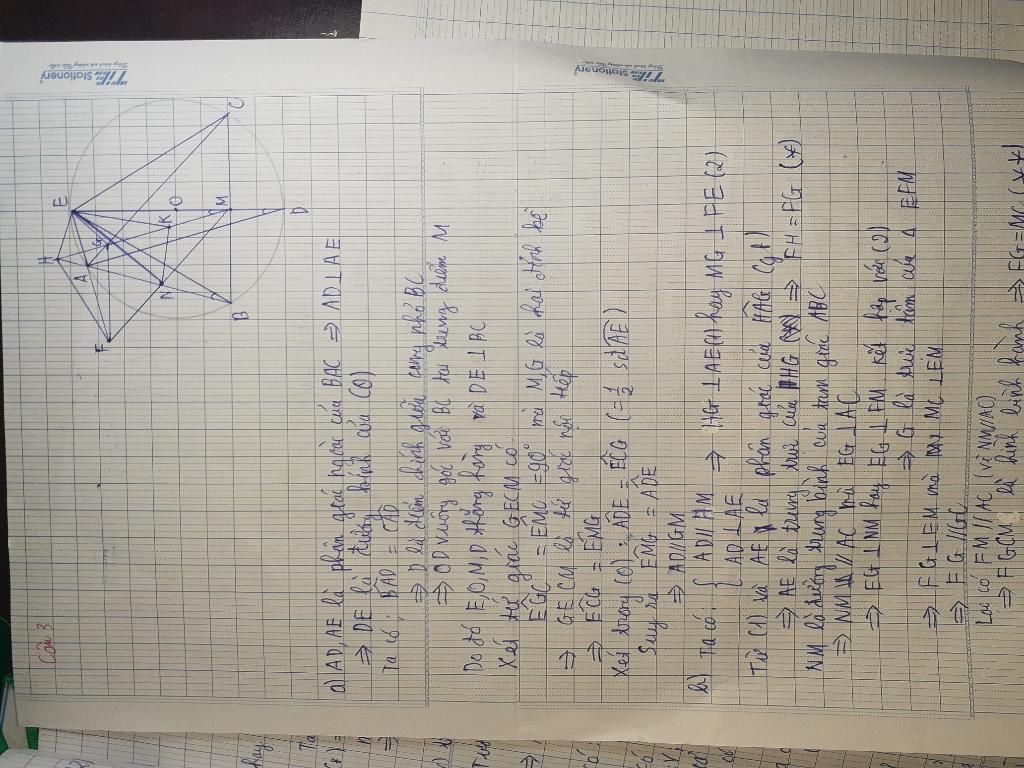 Tiến
Stationery
Tiến
Stationery
Câu 3
H
E
A
G
F
O
K
N
M
B
C
D
a) AD, AE là phân giác ngoài của BAC ⇒ AD⊥AE
⇒ DE là đường kính của (O)
Ta có: BAD = CAD
⇒ D là điểm chính giữa cung nhỏ BC
⇒ OD vuông góc với BC tại trung điểm M
Do đó E,O,M,D thẳng hàng và DE⊥BC
Xét tứ giác GECM có:
EGC = EMC = 90° mà M,G là hai đỉnh kề
⇒ GECM là tứ giác nội tiếp
⇒ ECG = EMG
Xét trong (O): ADE = ECG (= 1/2 sđ AE)
Suy ra EMG = ADE
⇒ AD//GM
b) Ta có: { AD//HM
AD⊥AE ⇒ HG⊥AE (1) hay MG⊥FE (2)
Từ (1) và AE là phân giác của HAG (gt)
⇒ AE là trung trực của HG ⇒ FH = FG (*)
NM là đường trung bình của tam giác ABC
⇒ NM // AC mà EG⊥AC
⇒ EG⊥NM hay EG⊥FM kết hợp với (2)
⇒ G là trực tâm của Δ EFM
⇒ FG⊥EM mà MC⊥EM
⇒ FG//GC
Lại có FM//AC (vì NM//AC)
⇒ FGCM là hình bình hành ⇒ FG=MC (**)